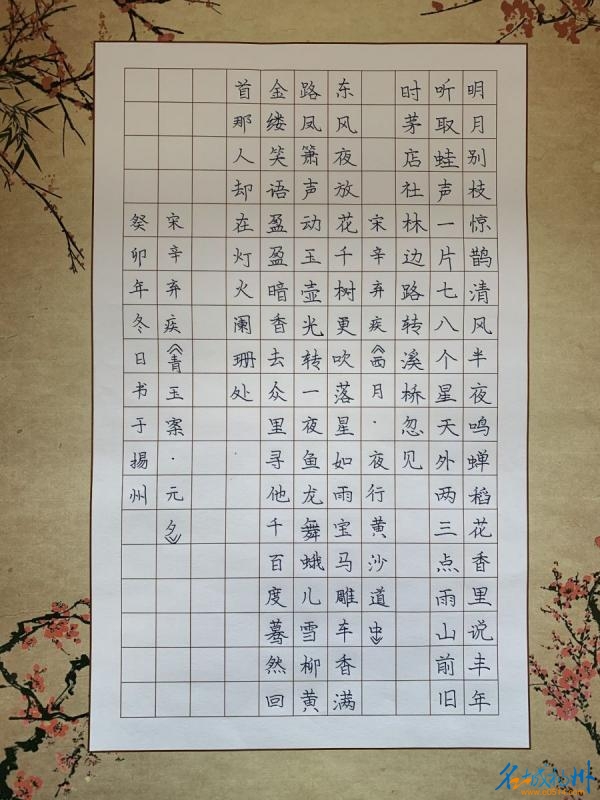 明月别枝惊鹊清风半夜鸣蝉稻花香里说丰年
听取蛙声一片七八个星天外两三点雨山前旧
时茅店社林边路转溪桥忽见
宋辛弃疾《西月·夜行黄沙道中》
东风夜放花千树更吹落星如雨宝马雕车香满
路凤箫声动玉壶光转一夜鱼龙舞蛾儿雪柳黄
金缕笑语盈盈暗香去众里寻他千百度蓦然回
首那人却在灯火阑珊处
宋辛弃疾《青玉案·元夕》
癸卯年冬日书于揚州
名城扬州